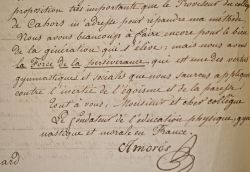 proposition très importante que le Proviseur du collège
de Cahors m'adresse pour répandre ma méthode.
Nous avons beaucoup à faire encore pour le bien
de la génération qui s'élève; mais nous avons
la Force de la persévérance, qui est une des vertus
gymnastiques et sociales que nous saurons appliquer
contre l'inertie de l'égoïsme et de la paresse.
Tout à vous, Monsieur et cher collègue.
Le fondateur de l'éducation physique, gym
nastique et morale en France.
Amoros
ard